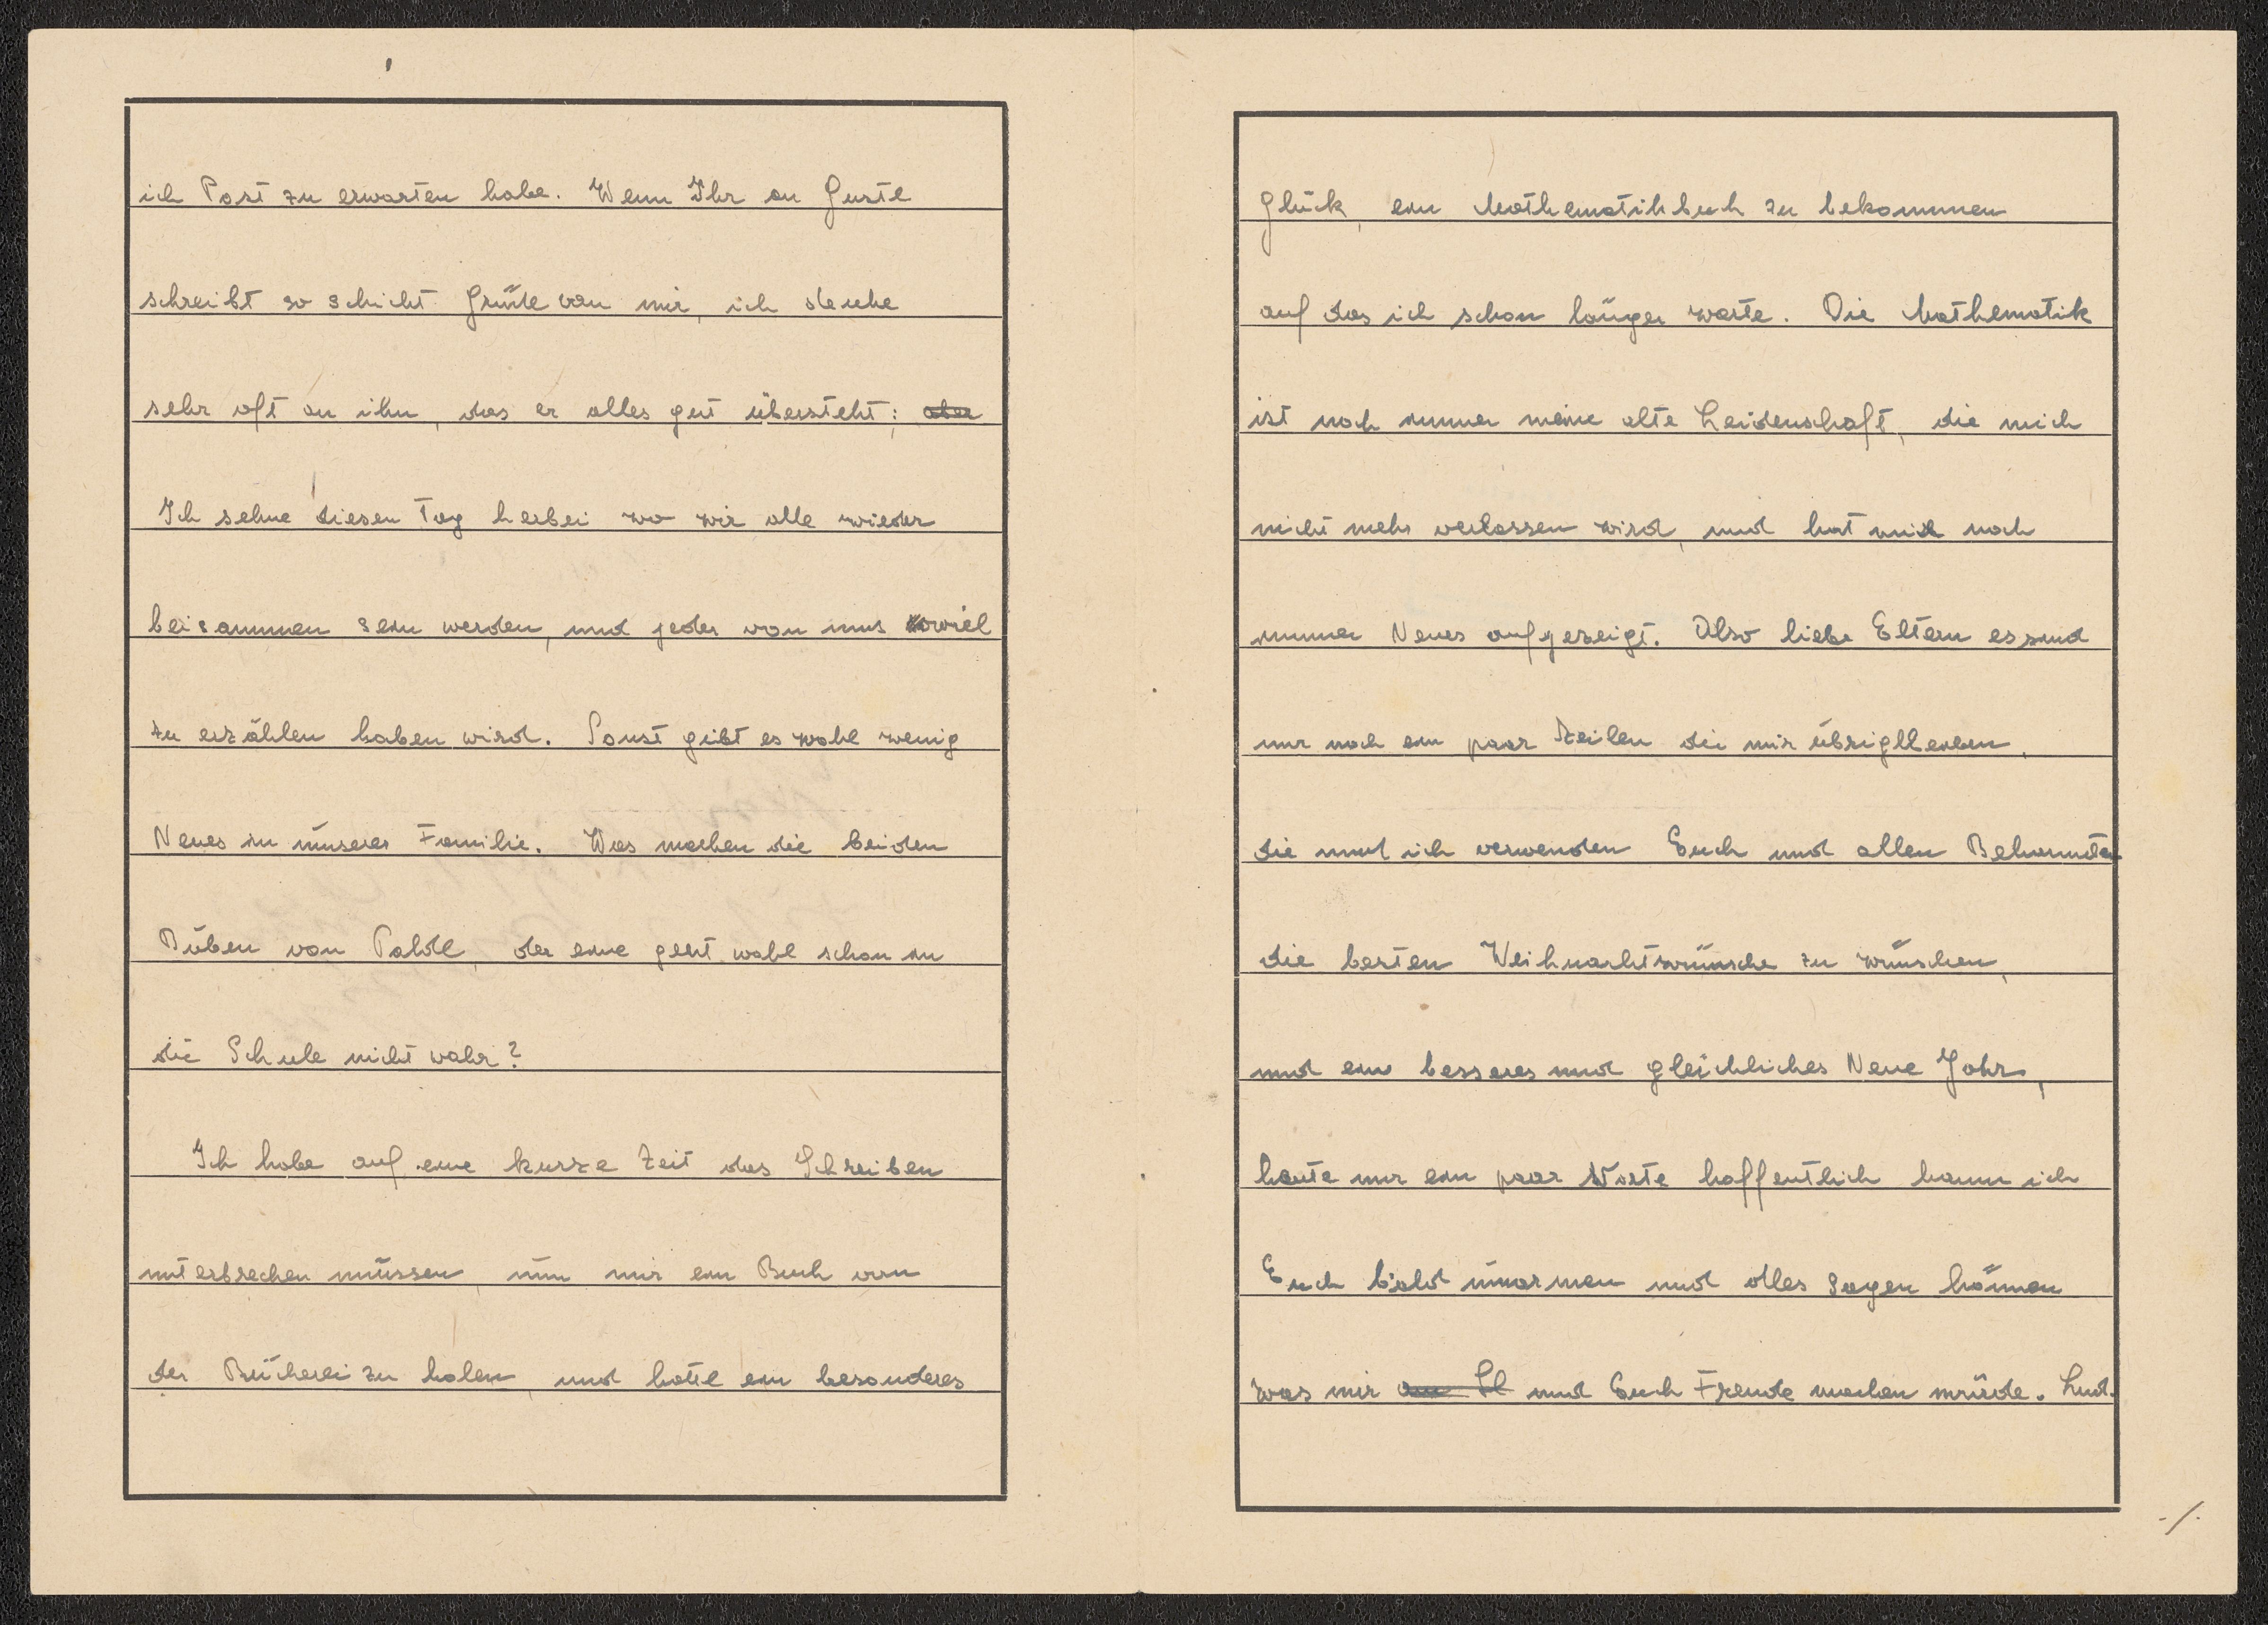 ich Post zu erwarten habe. Wenn Ihr an Guste
schreibt so schickt Grüße von mir, ich denke
sehr oft an ihn, das er alles gut übersteht; aber
Ich sehne diesen Tag herbei wo wir alle wieder
beisammen sein werden, und jeder von uns soviel
zu erzählen haben wird. Sonst gibt es wohl wenig
Neues in unserer Familie. Was machen die beiden
Buben von Poldl, der eine geht wohl schon in
die Schule nicht wahr?
Ich habe auf eine kurze Zeit das Schreiben
unterbrechen müssen, um mir ein Buch von
der Bücherei zu holen, und hatte ein besonderes
Glück, ein Mathematikbuch zu bekommen
auf das ich schon länger warte. Die Mathematik
ist noch immer meine alte Leidenschaft, die mich
nicht mehr verlassen wird, und hat mich noch
immer Neues aufgezeigt. Also liebe Eltern es sind
nur noch ein paar Zeilen die mir übrigbleiben,
die muß ich verwenden Euch und allen Bekannten
die besten Weihnachtswünsche zu wünschen,
und ein besseres und glückliches Neue Jahr,
heute nur ein paar Worte hoffentlich kann ich
Euch bald umarmen und alles sagen können
was mir und Euch Freude machen würde. Lud.
-/.